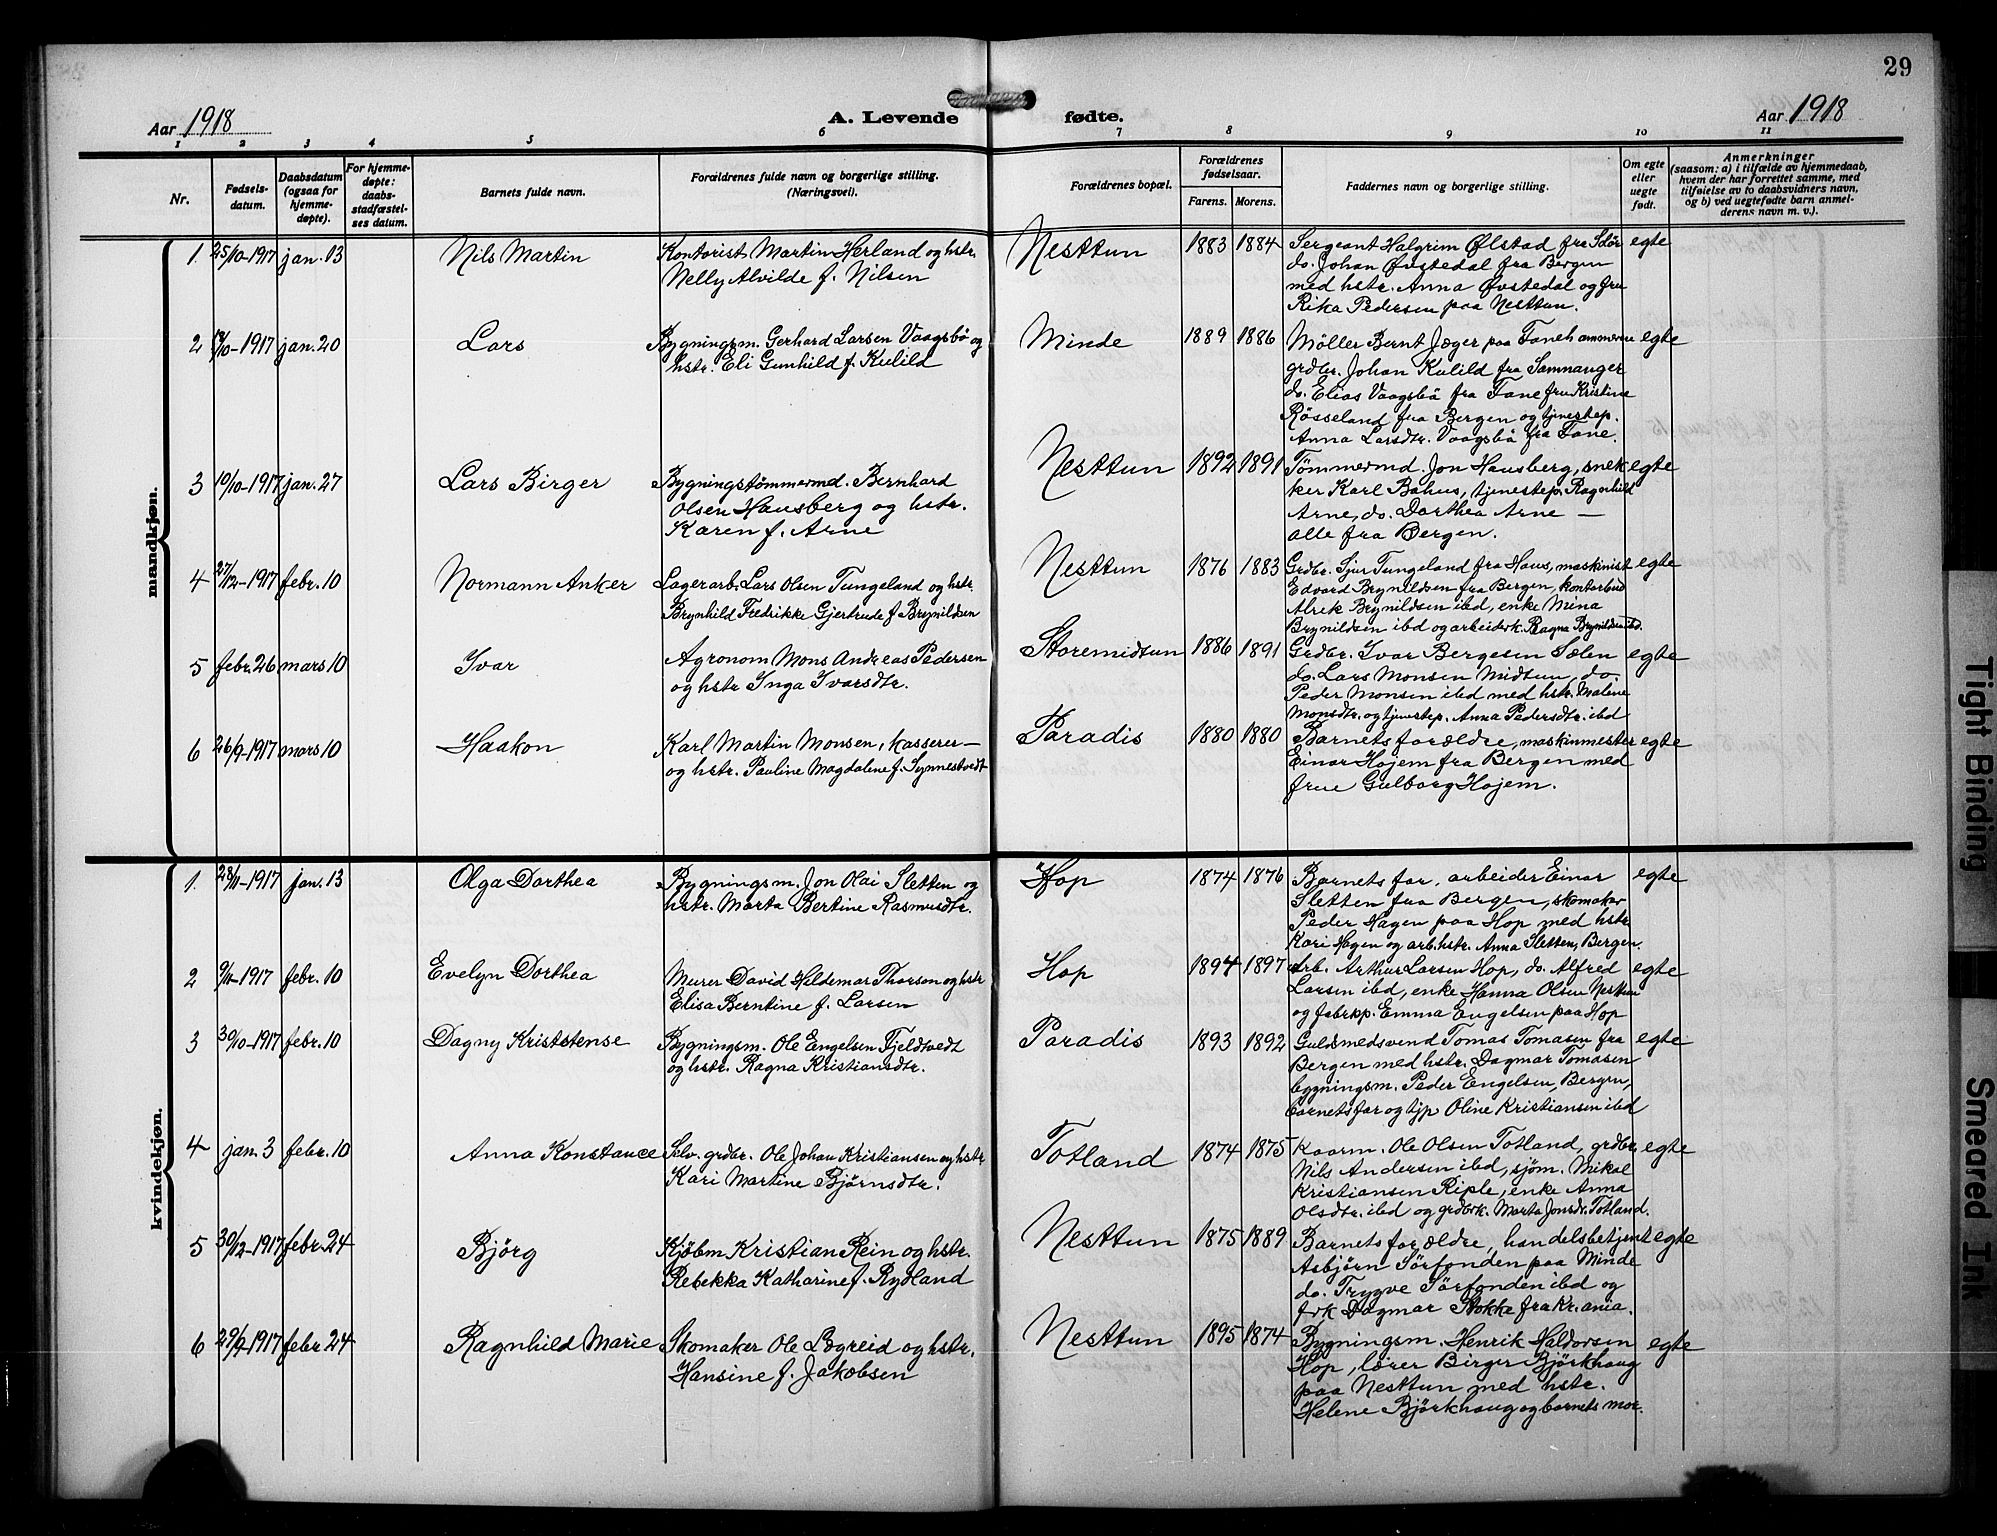 29
Aar 1918
A. Levende fødte.
Aar 1918
1 2 3 4 5 6 7 8 9 10 11
Nr.
Fødsels-
datum.
Daabsdatum
(ogsaa for
hjemme-
døpte).
For hjemme-
døpte:
daabs-
stadfæstel-
ses datum.
Barnets fulde navn.
Forældrenes fulde navn og borgerlige stilling.
(Næringsvei).
Forældrenes bopæl.
Forældrenes
fødselsaar.
Farens. Morens.
Faddernes navn og borgerlige stilling.
Om egte
eller
uegte
født.
Anmerkninger
(saasom: a) i tilfælde av hjemmedaab,
hvem der har forrettet samme, med
tilføielse av to daabsvidners navn,
og b) ved uegtefødte barn anmel-
derens navn m. v.).
mandkjøn.
1. 25/10-1917 jan. 13 Nils Martin
Kontorist Martin Herland og hstr.
Nelly Alvilde f. Nilsen
Nesttun 1883 1884
Sergeant Halgrim Ølstad fra Sdør
do. Johan Øvstedal fra Bergen
med hstr. Anna Øvstedal og fru
Rika Pedersen paa Nesttun.
egte
2 /10-1917 jan. 20 Lars
Bygningsm. Gerhard Larsen Vaagsbø og
hstr. Eli Gunhild f. Kulild
Minde 1889 1886
Møller Bernt Jæger paa Fanehammeren
grdbr. Johan Kulild fra Samnanger
do. Elias Vaagsbø fra Fane fru Kristine
Røsseland fra Bergen og tjenestep.
Anna Larsdtr. Vaagsbø fra Fane.
egte
3 10/10-1917 jan. 27 Lars Birger
Bygningstømmermd. Bernhard
Olsen Hausberg og hstr.
Karen f. Arne
Nesttun 1892 1891
Tømmermd. Jon Hausberg, snek
ker Karl Bahus, tjenestep. Ragnhild
Arne, do. Dorthea Arne —
alle fra Bergen.
egte
4 27/12-1917 febr. 10 Normann Anker
Lagerarb. Lars Olsen Tungeland og hstr.
Brynhild Fredrikke Gjertrude f Brynildsen
Nesttun 1876 1883
Grdbr. Sjur Tungeland fra Haus, maskinist
Edvard Brynildsen fra Bergen, kontorbud
Alrek Brynildsen ibd, enke Mina
Brynildsen ibd og arbeidersk. Ragna Brynildsen ibd.
egte
5 febr. 26 mars 10 Ivar
Agronom Mons Andreas Pedersen
og hstr Inga Ivarsdtr.
Storemidtun 1886 1891
Grdbr. Ivar Bergesen Sælen
do. Lars Monsen Midtun, do.
Peder Monsen ibd med hstr. Malene
Monsdtr. og tjenestep. Anna Pedersdtr. ibd
egte
6 26/9-1917 mars 10 Haakon
Karl Martin Monsen, kasserer —
og hstr. Pauline Magdalene f. Synnestvedt
Paradis 1880 1880
Barnets forældre, maskinmester
Einar Hojem fra Bergen med
frue Gulborg Hojem.
egte
kvindekjøn.
1. 28/11-1917 jan. 13 Olga Dorthea
Bygningsm. Jon Olai Sletten og
hstr. Marta Bertine Rasmusdtr.
Hop 1874 1876
Barnets far, arbeider Einar
Sletten fra Bergen, skomaker
Peder Hagen paa Hop med hstr
Kari Hagen og arb.hstr. Anna Sletten, Bergen.
egte
2 9/11-1917 febr. 10 Evelyn Dorthea
Murer David Hildemar Thorsen og hstr
Elisa Berntine f. Larsen
Hop 1894 1897
Arb. Arthur Larsen Hop, do. Alfred
Larsen ibd, enke Hanna Olsen Nesttun
og fabrkp. Emma Engelsen paa Hop
egte
3 30/10-1917 febr. 10 Dagny Kristense
Bygningsm. Ole Engelsen Fjeldtvedt
og hstr. Ragna Kristiansdtr.
Paradis 1893 1892
Guldsmedsvend Tomas Tomasen fra
Bergen med hstr. Dagmar Tomasen
bygningsm. Peder Engelsen, Bergen,
barnets far og tjp Oline Kristiansen ibd
egte
4 jan. 3 febr. 10 Anna Konstance
Selv. grdbr. Ole Johan Kristiansen og hstr
Kari Martine Bjørnsdtr.
Totland 1874 1875
Kaarm. Ole Olsen Totland, grdbr
Nils Andersen ibd, sjøm. Mikal
Kristiansen Riple, enke Anna
Olsdtr. ibd og grdbrk. Marta Jonsdr. Totland.
egte
5 30/12-1917 febr. 24 Bjørg
Kjøbm Kristian Rein og hstr.
Rebekka Katharine f. Rydland
Nesttun 1875 1889
Barnets forældre, handelsbetjent
Asbjørn Sørfonden paa Minde
do. Trygve Sørfonden ibd og
frk Dagmar Stokke fra Kr.ania.
egte
6 29/9-1917 febr. 24 Ragnhild Marie
Skomaker Ole Lægreid og hstr.
Hansine f. Jakobsen
Nesttun 1895 1874
Bygningsm. Henrik Haldorsen
Hop, lærer Birger Bjørkhaug
paa Nesttun med hstr.
Helene Bjørkhaug og barnets mor.
egte
Tight Binding
Smeared Ink